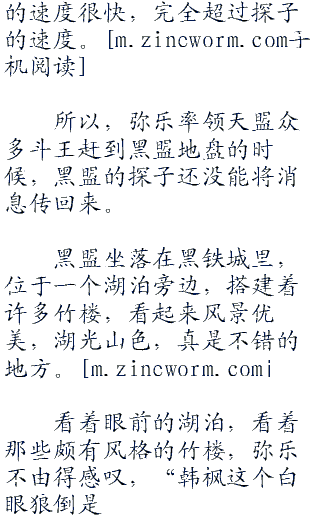 的速度很快，完全超过探子
的速度。[m.zincworm.com手
机阅读]
所以，弥乐率领天盟众
多斗王赶到黑盟地盘的时
候，黑盟的探子还没能将消
息传回来。
黑盟坐落在黑铁城里，
位于一个湖泊旁边，搭建着
许多竹楼，看起来风景优
美，湖光山色，真是不错的
地方。[m.zincworm.com]
看着眼前的湖泊，看着
那些颇有风格的竹楼，弥乐
不由得感叹，“韩枫这个白
眼狼倒是